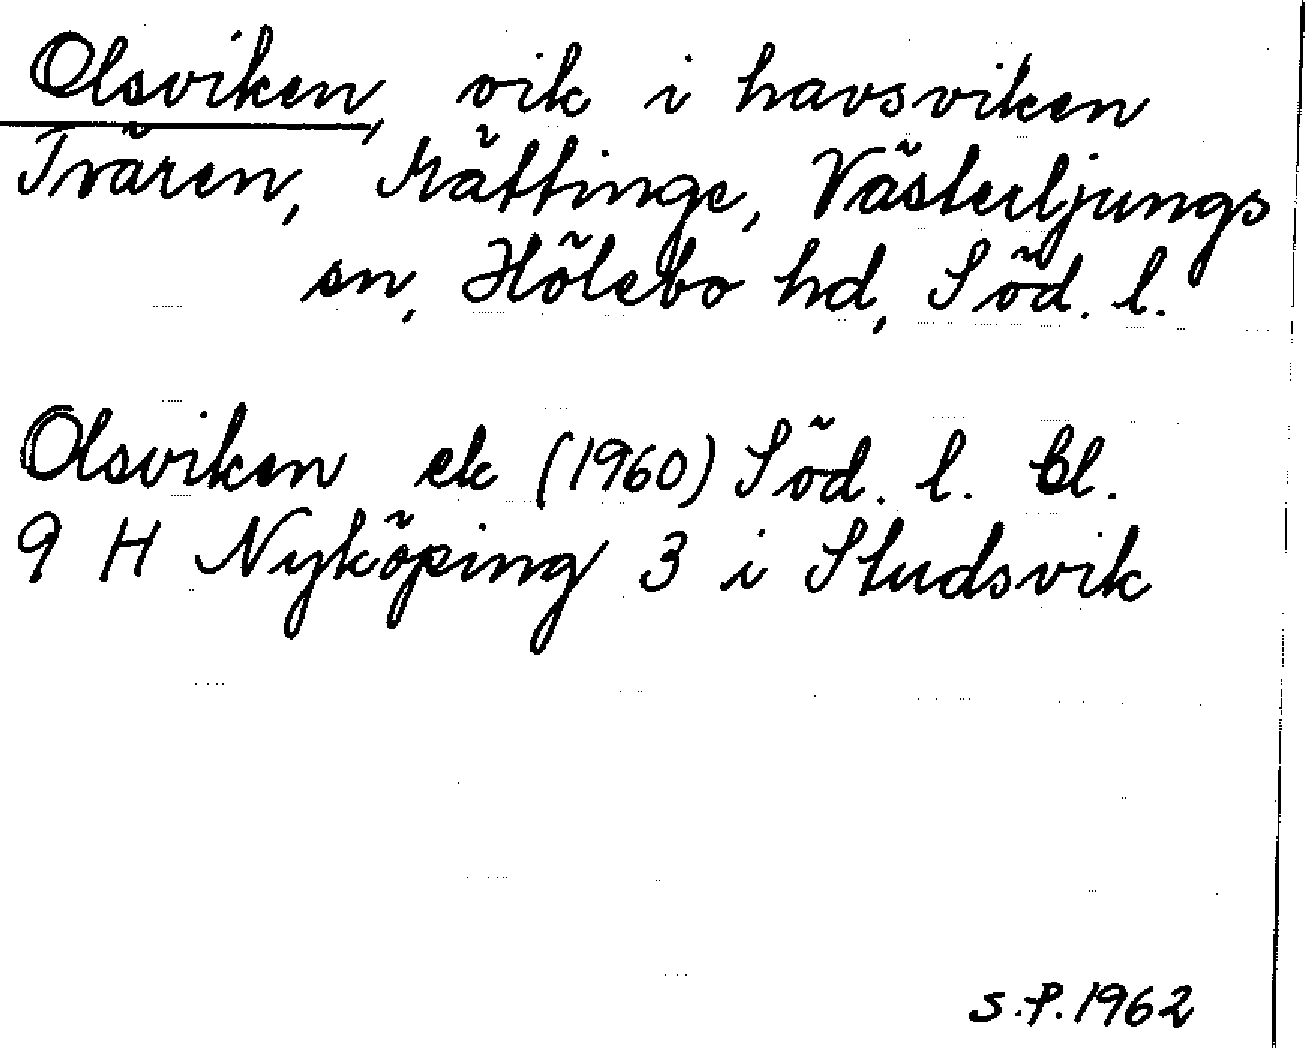 Olsviken, vik i havsviken
Tvären, Mättinge, Västerljungs
sn, Hölebo hd, Söd. l.
Olsviken ek (1960) Söd. l. bl.
9 H Nyköping 3 i Studsvik
S.P. 1962